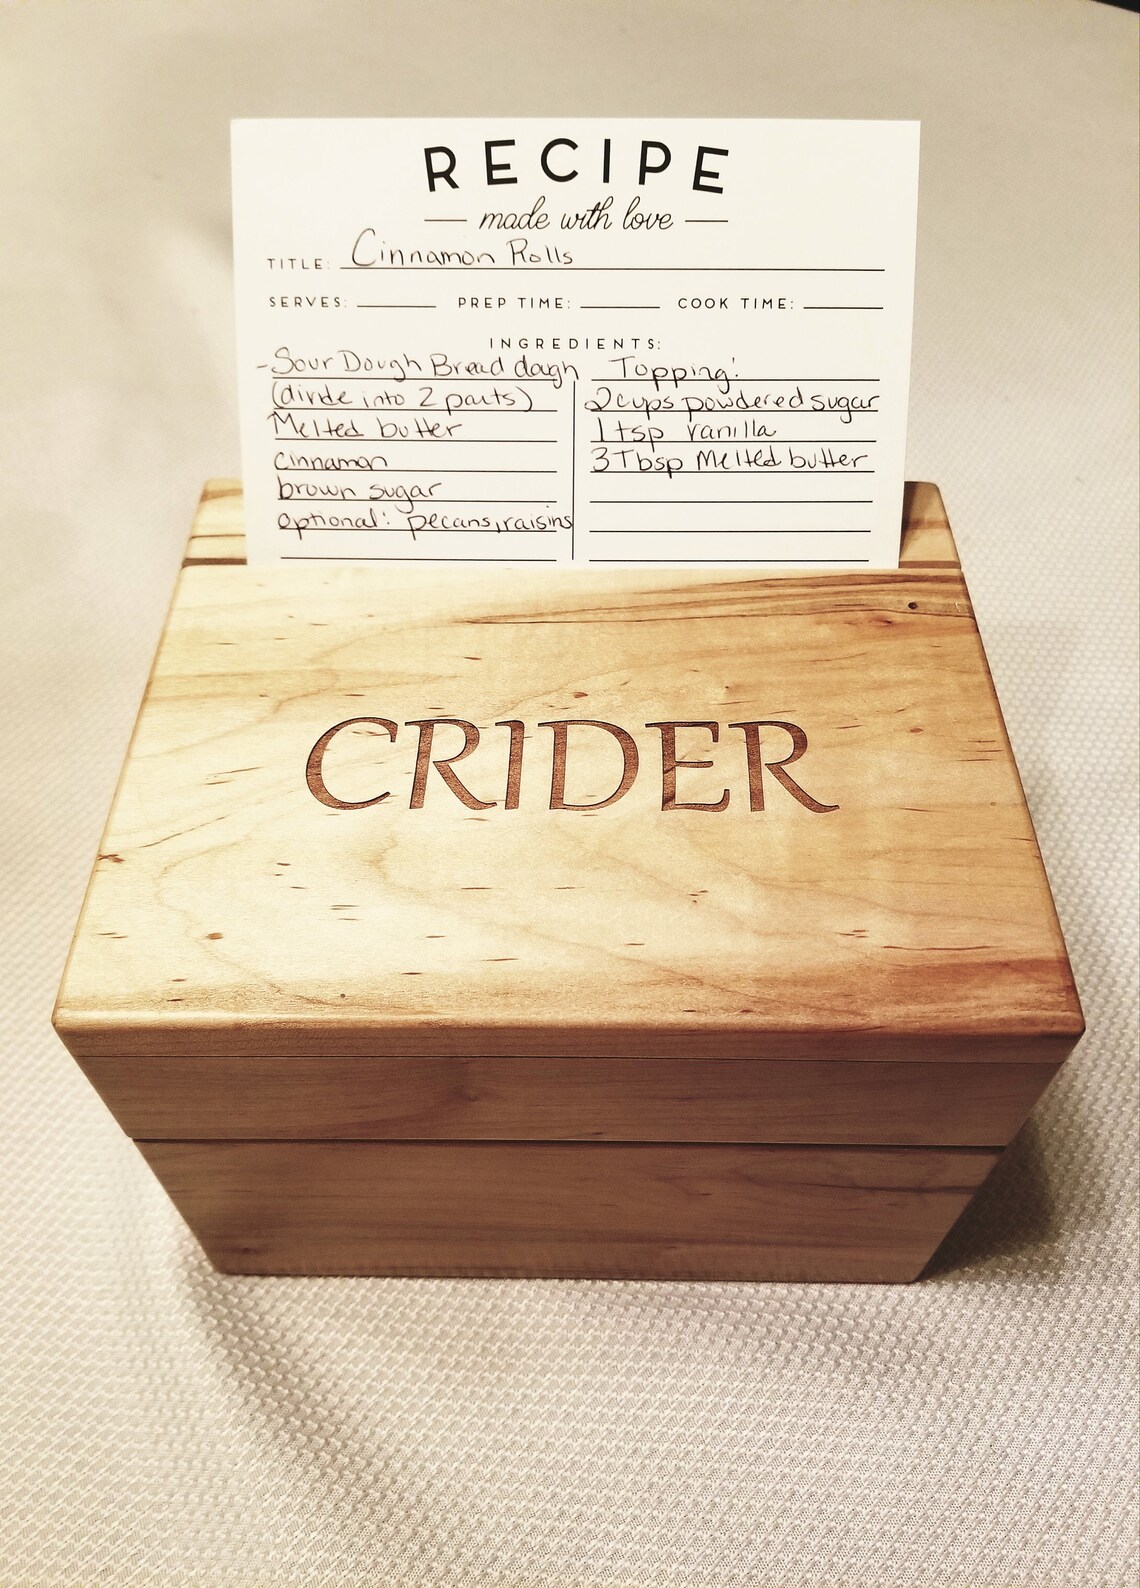 RECIPE
made with love
TITLE: Cinnamon Rolls
SERVES: PREP TIME: COOK TIME:
INGREDIENTS:
-Sour Dough Bread dough
(divide into 2 parts)
Melted butter
cinnamon
brown sugar
optional: pecans, raisins
Topping:
2 cups powdered sugar
1 tsp vanilla
3 Tbsp Melted butter
CRIDER